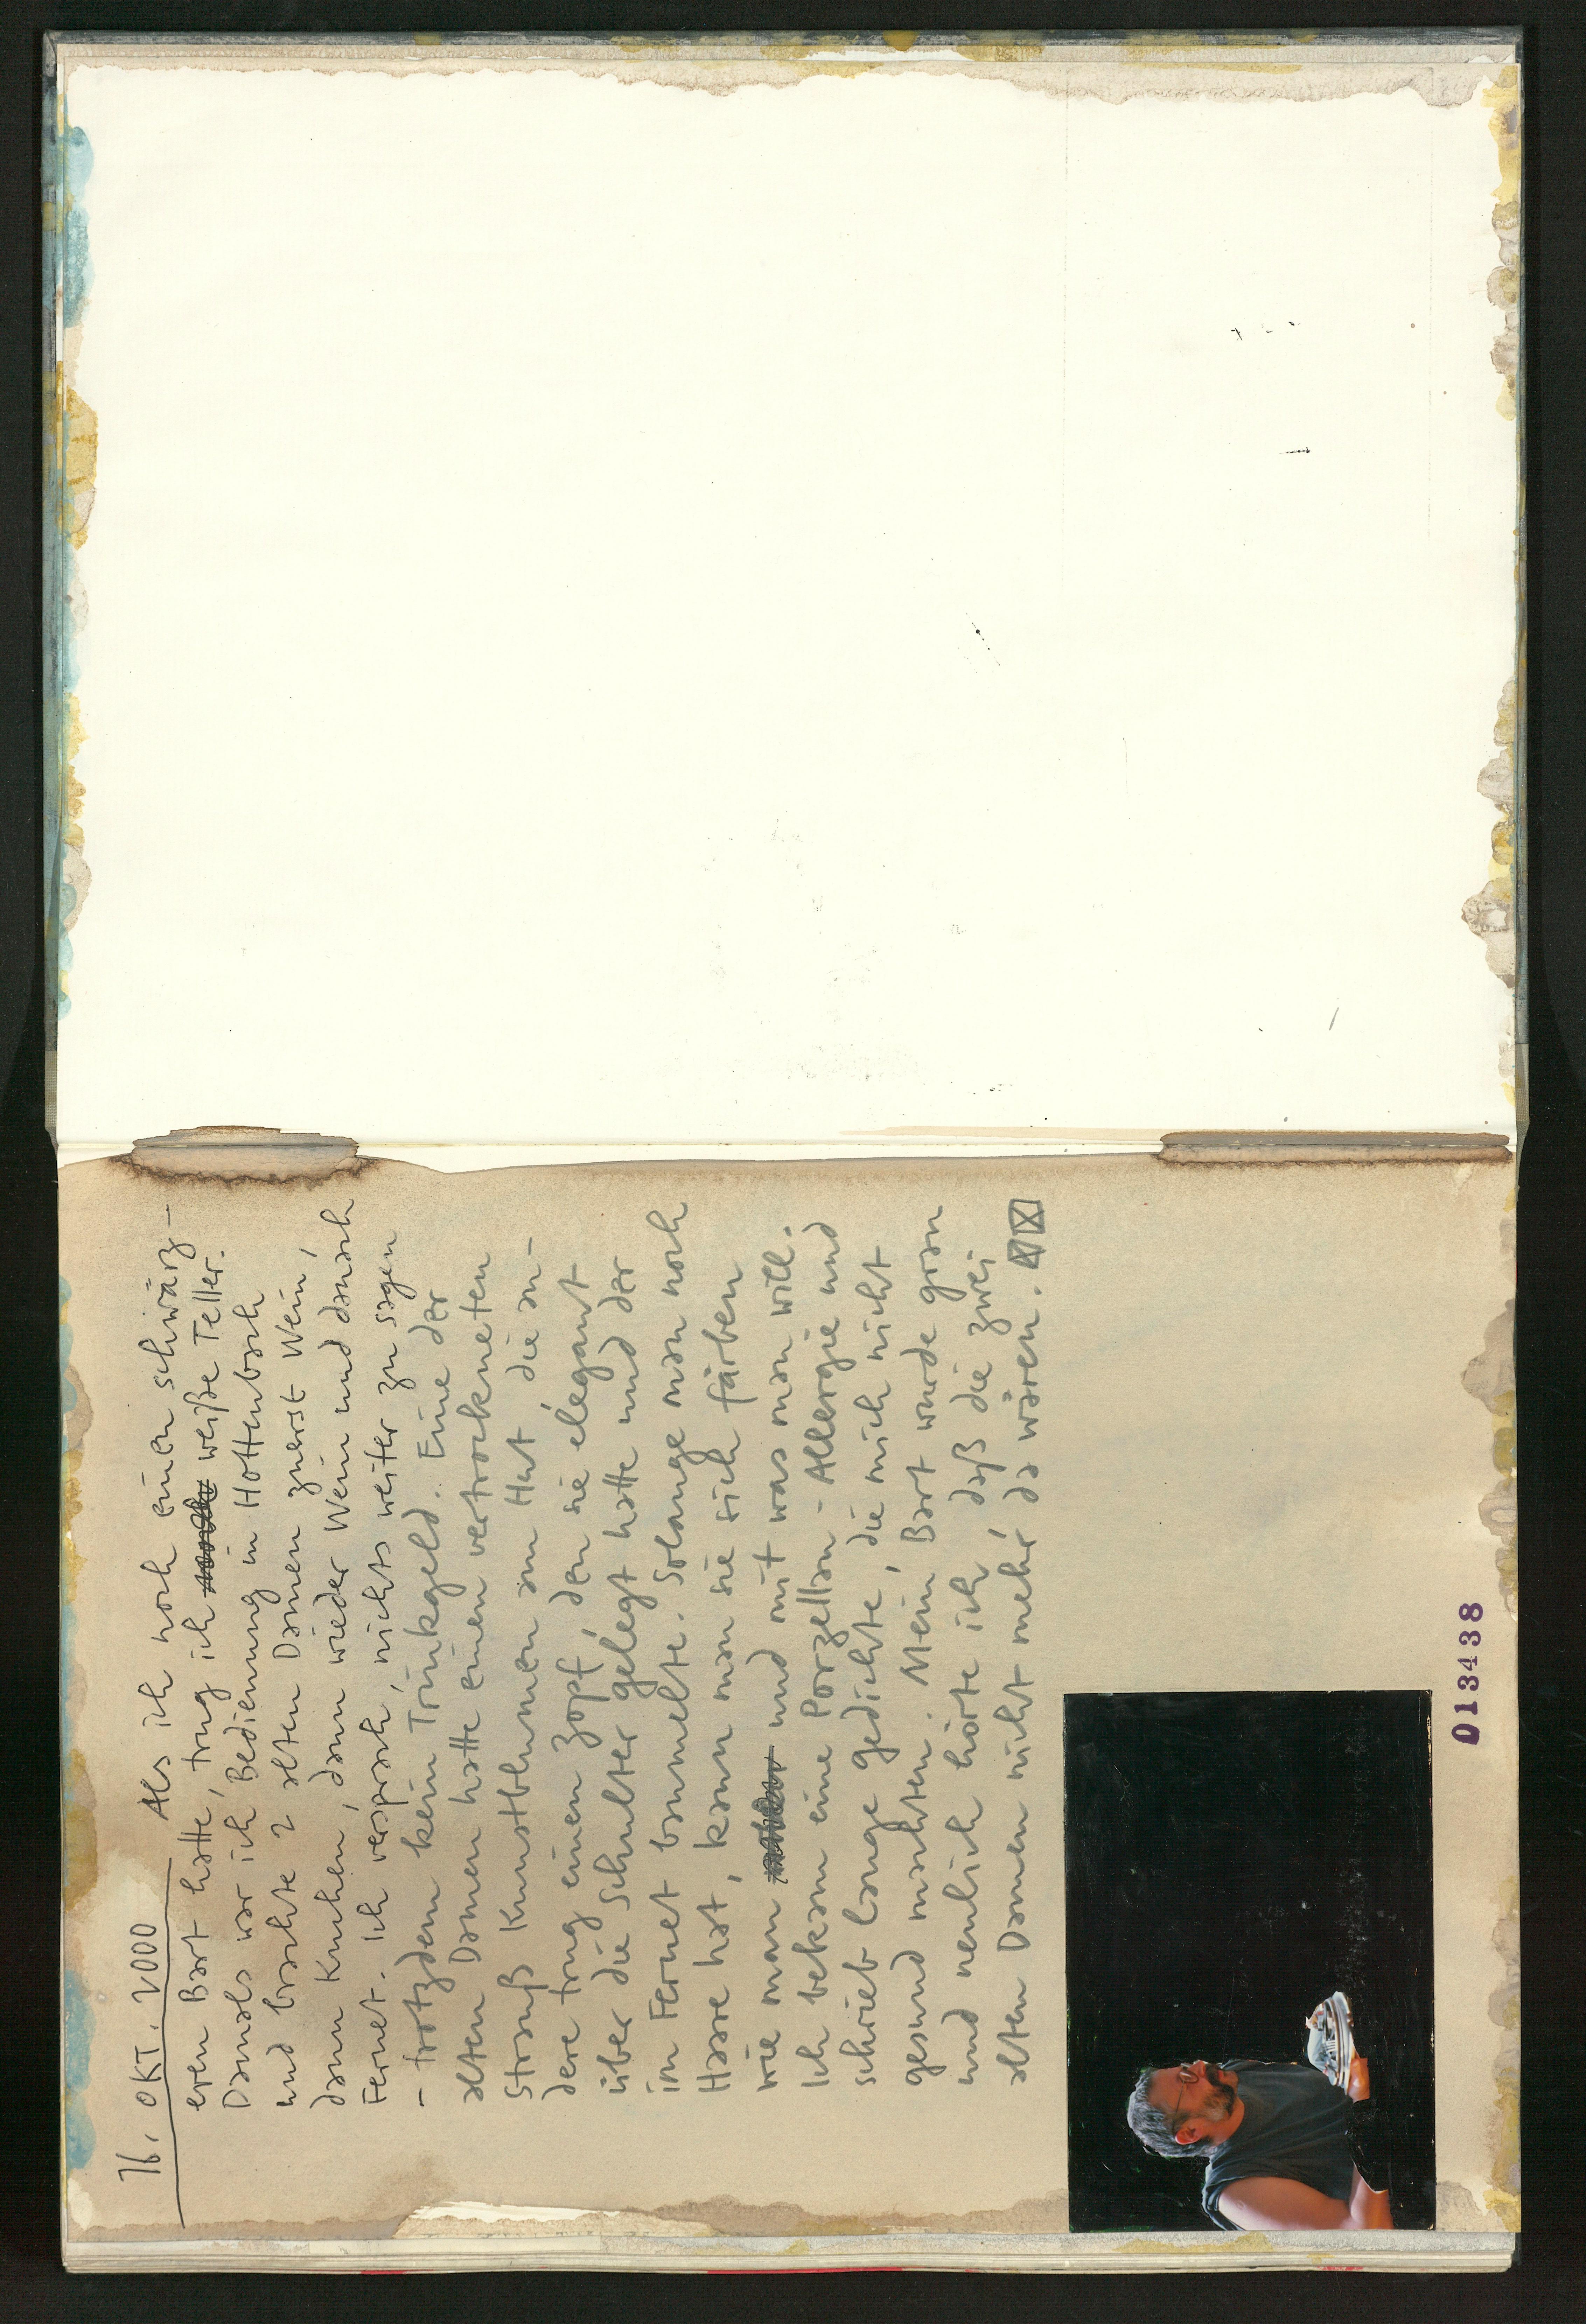 16. OKT. 2000
Als ich noch einen schwärz-
eren Bart hatte, trug ich weiße Teller.
Damals war ich Bedienung in Hottenbach
und brachte 2 alten Damen zuerst Wein,
dann Kuchen, dann wieder Wein und danach
Fernet. Ich versprach, nichts weiter zu sagen
- trotzdem kein Trinkgeld. Eine der
alten Damen hatte einen vertrockneten
Strauß Kunstblumen am Hut, die an-
dere trug einen Zopf, den sie elegant
über die Schulter gelegt hatte und der
im Fernet baumelte. Solange man noch
Haare hat, kann man sie sich färben
wie man und mit was man will.
Ich bekam eine Porzellan-Allergie und
schrieb lange Gedichte, die mich nicht
gesund machten. Mein Bart wurde grau
und neulich hörte ich, daß die zwei
alten Damen nicht mehr da wären.
013438